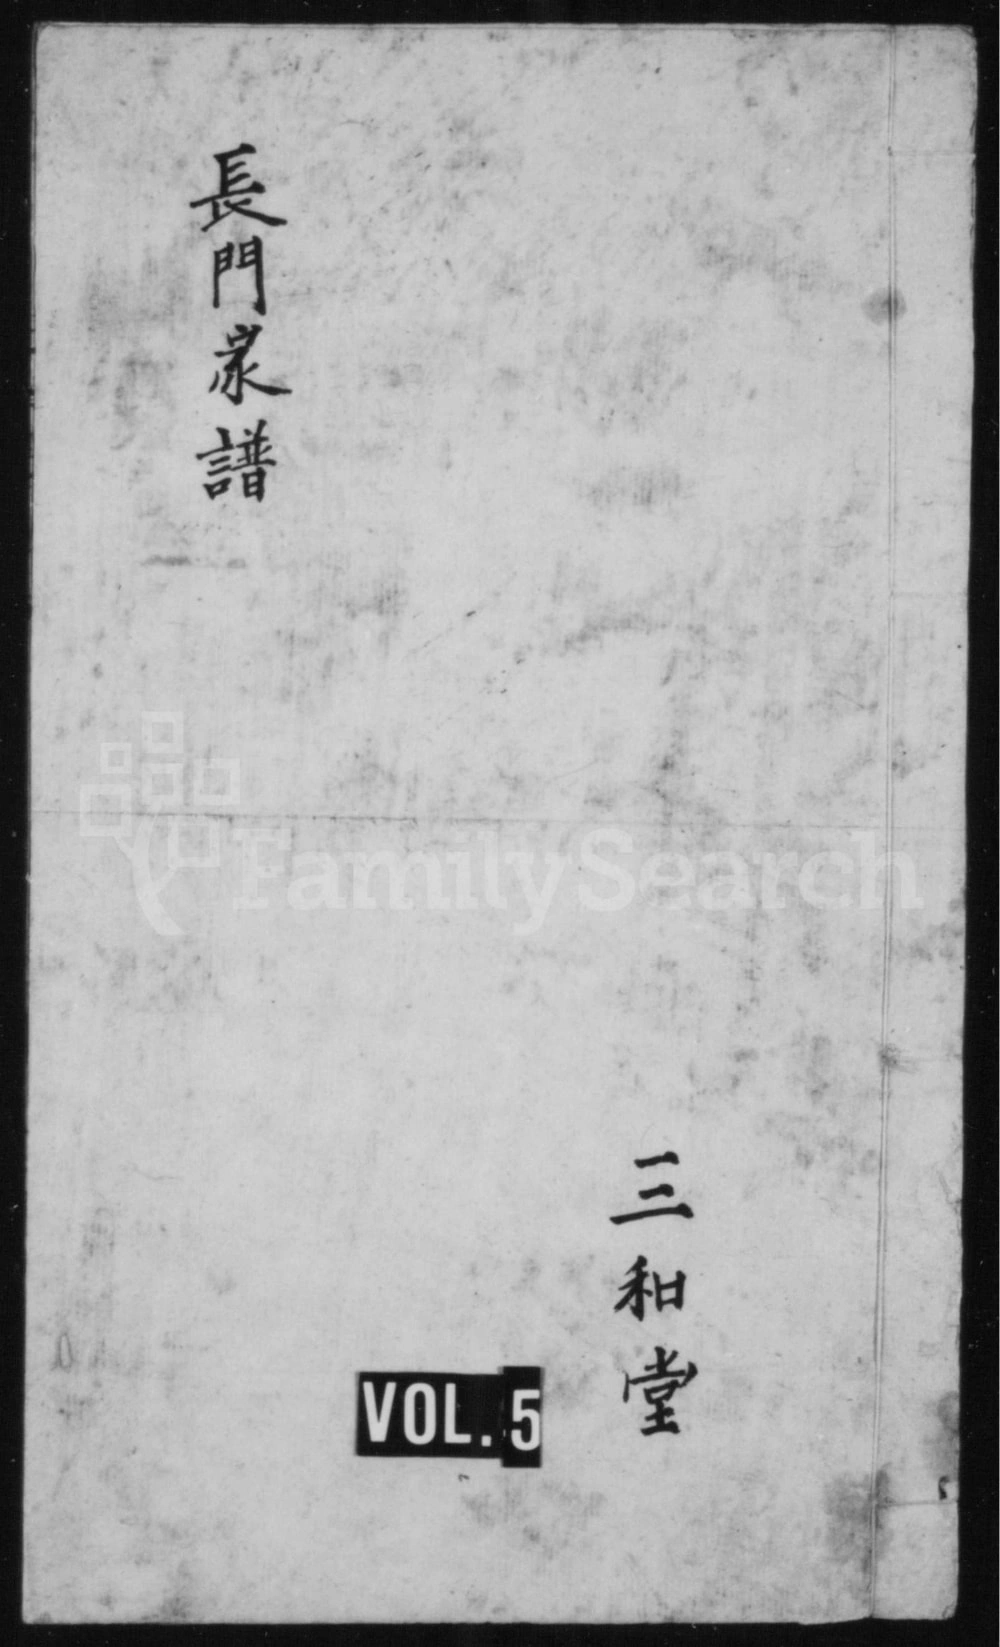 長門家譜
三和堂
VOL.5
FamilySearch